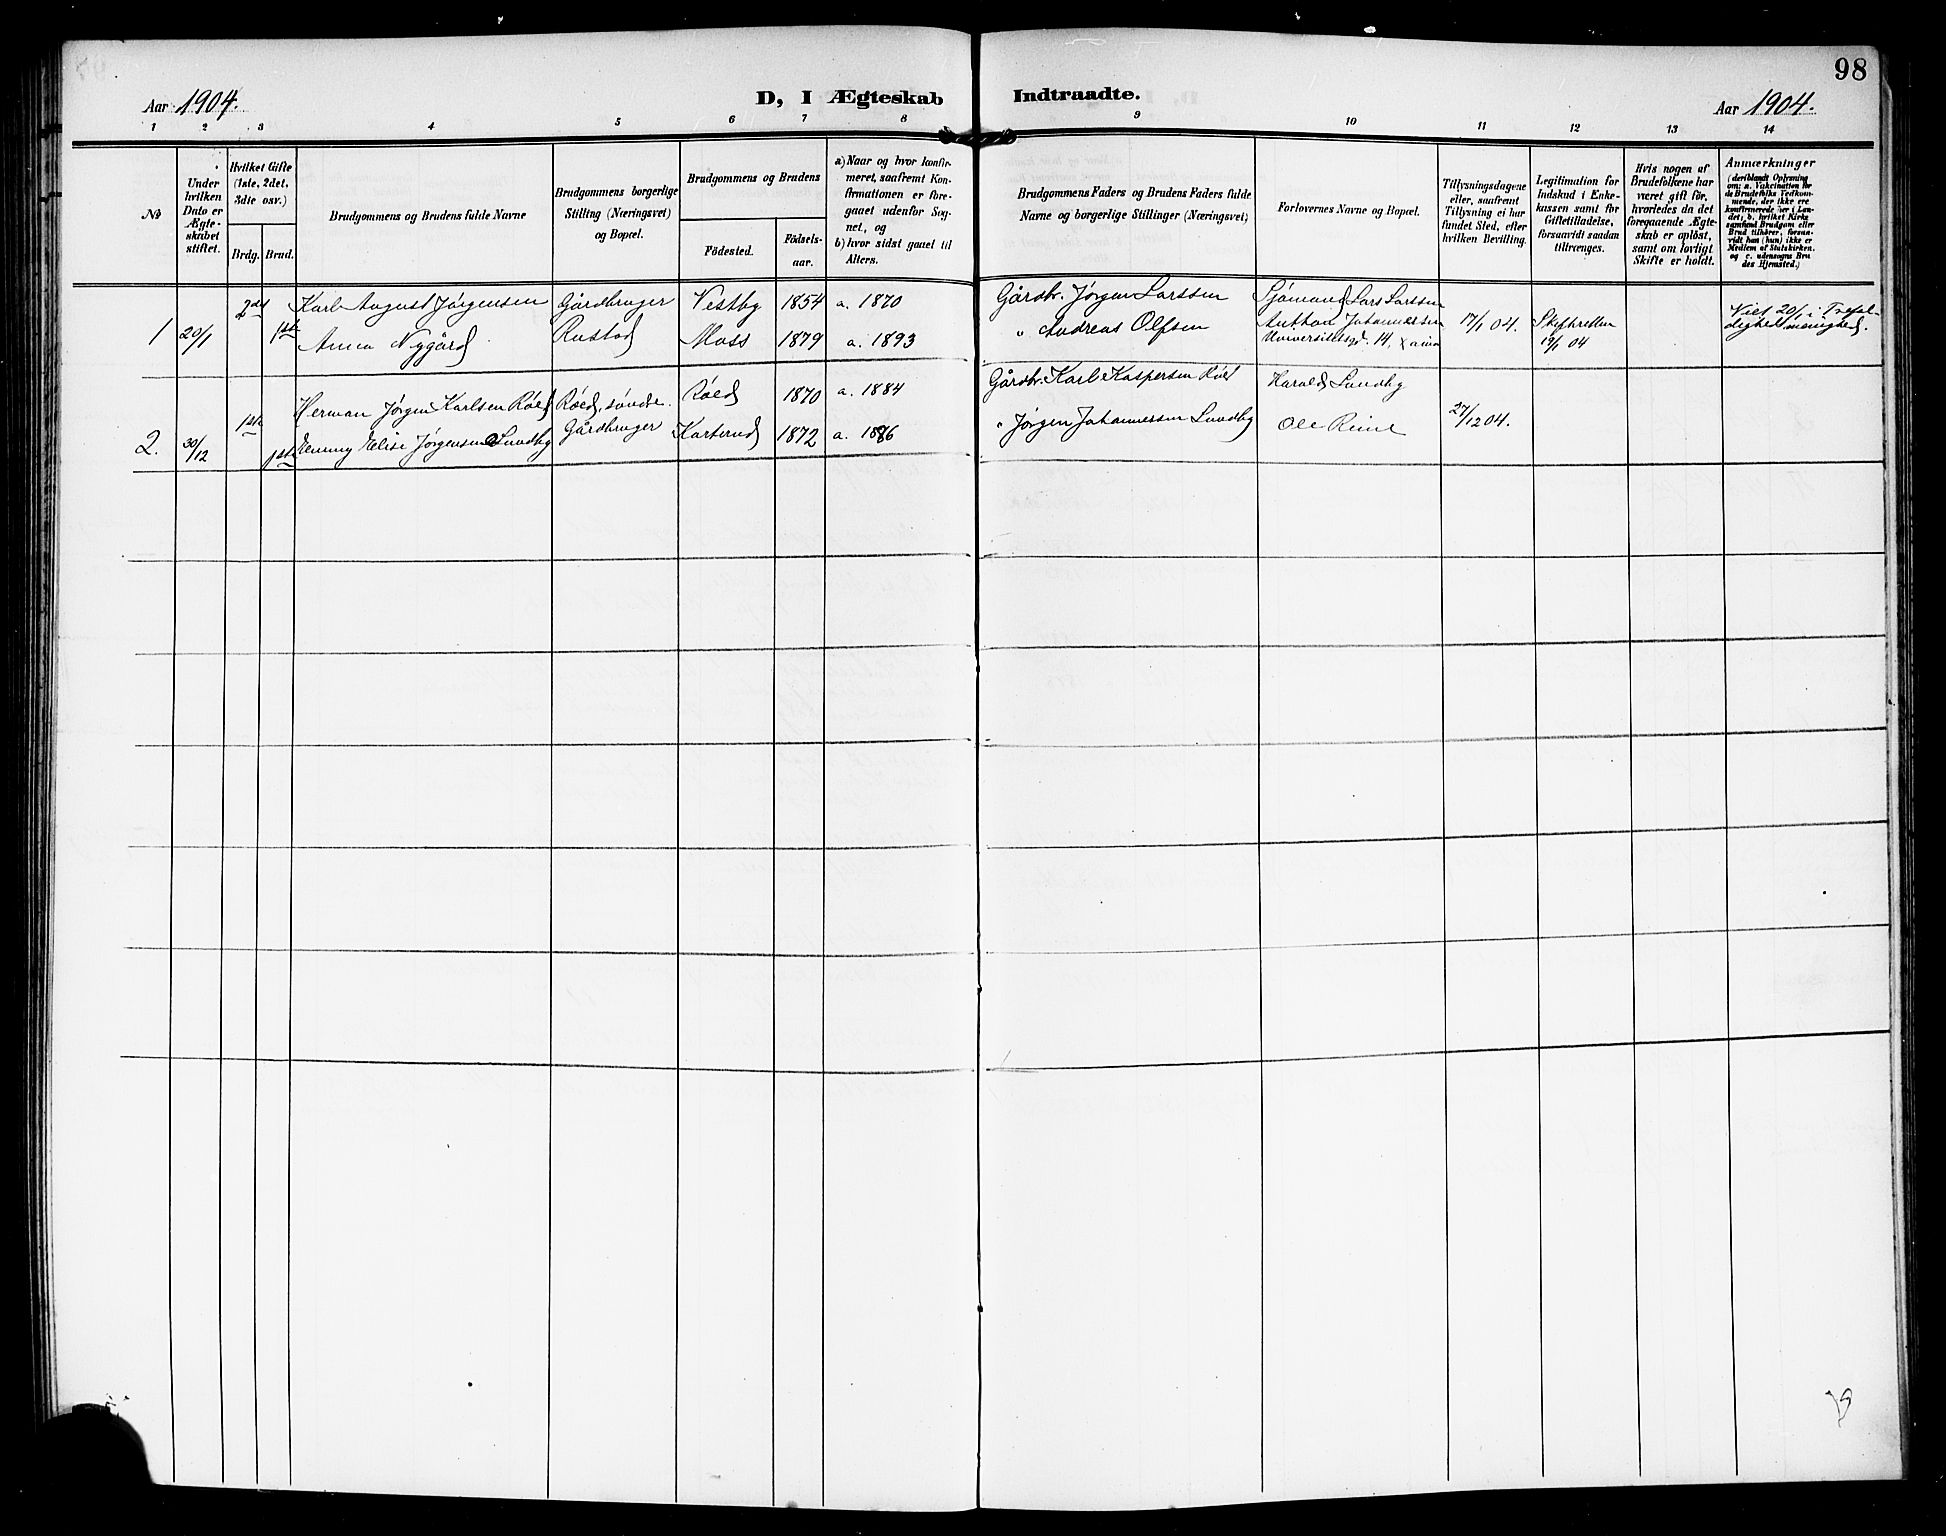 98
Aar 1904.
D, I Ægteskab Indtraadte.
Aar 1904.
1 2 3 4 5 6 7 8 9 10 11 12 13 14
No
Under hvilken Dato er Ægteskabet stiftet.
Hvilket Gifte (1ste, 2det, 3die osv.)
Brdg. Brud.
Brudgommens og Brudens fulde Navne
Brudgommens borgerlige Stilling (Næringsvei) og Bopæl.
Brudgommens og Brudens
Födested.
Födselsaar.
a) Naar og hvor konfirmeret, saafremt Konfirmationen er foregaaet udenfor Sognet, og
b) hvor sidst gaaet til Alters.
Brudgommens Faders og Brudens Faders fulde Navne og borgerlige Stillinger (Næringsvei)
Forlovernes Navne og Bopæl.
Tillysningsdagene eller, saafremt Tillysning ei har fundet Sted, efter hvilken Bevilling.
Legitimation for Indskud i Enkekassen samt for Giftetilladelse, forsaavidt saadan tiltrænges.
Hvis nogen af Brudefolkene har været gift för, hvorledes da det foregaaende Ægteskab er oplöst, samt om lovligt Skifte er holdt.
Anmærkninger (deriblandt Oplysning om: a. Vakcination for de Brudefolks Vedkommende, der ikke ere konfirmerede her i Landet; b. hvilket Kirkesamfund Brudgom eller Brud tilhörer, forsaavidt han (hun) ikke er Medlem af Statskirken, og c. udensogns Brudes Hjemsted.)
1 20/1 2det Karl August Jørgensen Gårdbruger Vestby 1854 a. 1870 Gårdbr. Jørgen Larssen Sjømand Lars Larssen
1ste Anna Nygård Rustad Moss 1879 a. 1893 " Andreas Olfsen Anthon Johannessen 17/1 04. Skifteretten
Universitetsgd. 14, Xania 19/1 04
Viet 20/1 i Trefoldighets menighed.
2. 30/12 1ste Herman Jørgen Karlsen Røed Røed, søndre. Røed 1870 a. 1884 Gårdbr. Karl Kaspersen Røed Harald Lundby
1ste Emmy Elise Jørgensen Lundby Gårdbruger Karterud 1872 a. 1886 " Jørgen Johannessen Lundby Ole Reine 27/12 04.